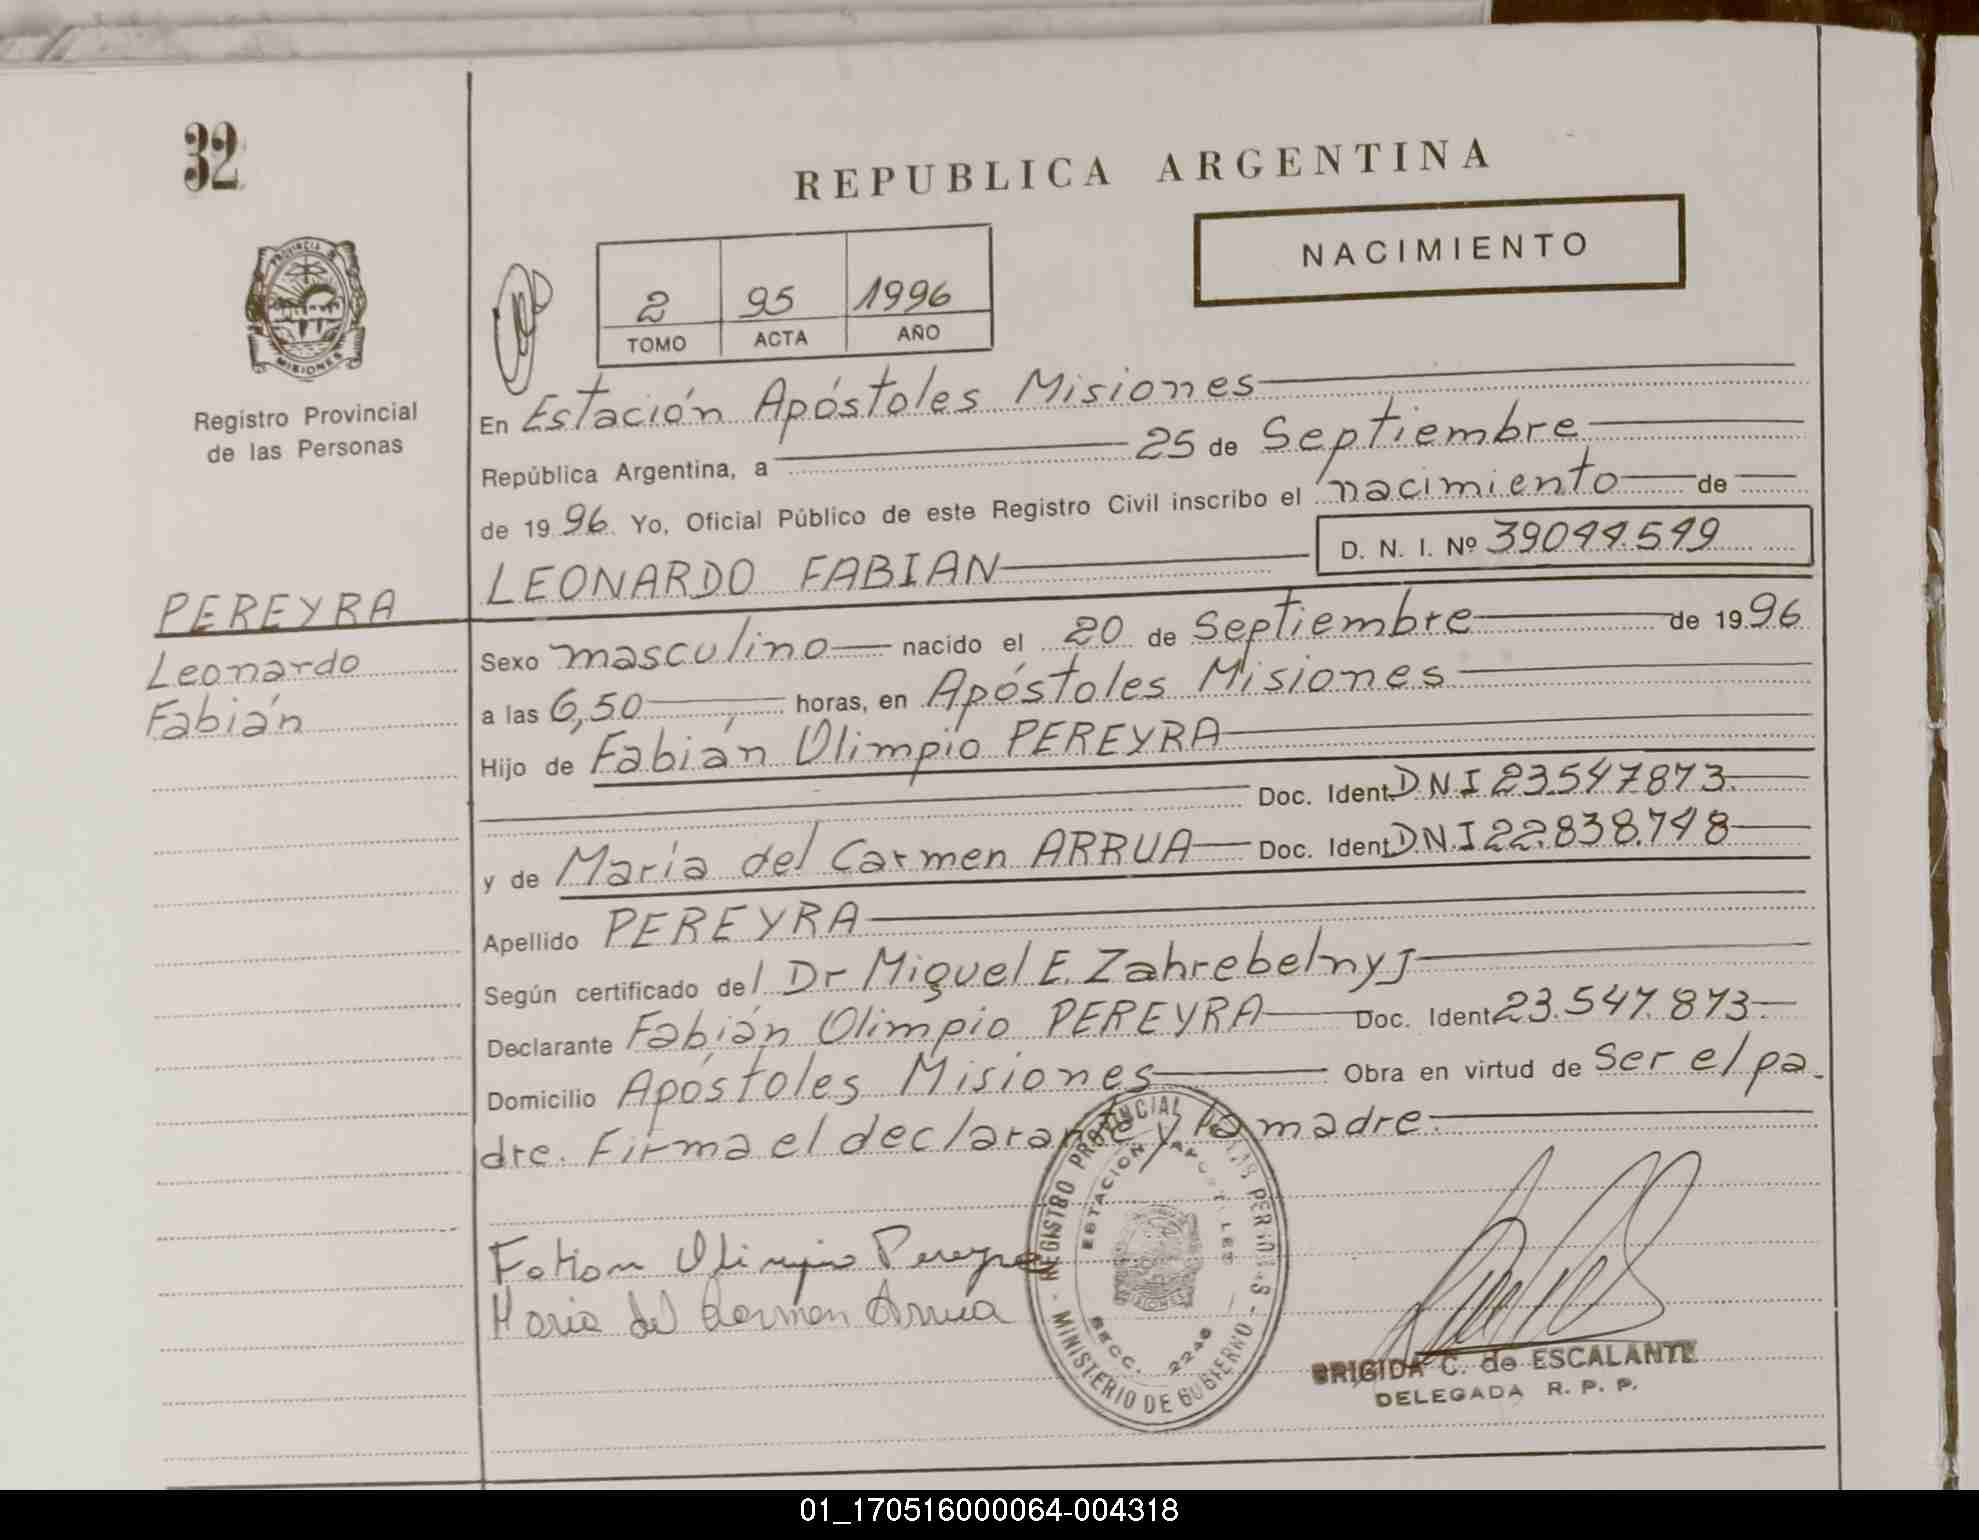 32
REPUBLICA ARGENTINA
NACIMIENTO
PROVINCIA DE
MISIONES
Registro Provincial
de las Personas
2 95 1996
TOMO ACTA AÑO
En Estación Apóstoles Misiones
República Argentina, a 25 de Septiembre
de 1996. Yo, Oficial Público de este Registro Civil inscribo el nacimiento de
LEONARDO FABIAN D. N. I. Nº 39044.549
PEREYRA
Leonardo
Fabián
Sexo masculino nacido el 20 de Septiembre de 1996
a las 6,50 horas, en Apóstoles Misiones
Hijo de Fabián Olimpio PEREYRA
Doc. Ident. DNI 23.547873.
y de María del Carmen ARRUA Doc. Ident. D.N.I 22.838.748
Apellido PEREYRA
Según certificado del Dr Miguel E. Zahrebelnyj
Declarante Fabián Olimpio PEREYRA Doc. Ident. 23.547.873.
Domicilio Apóstoles Misiones Obra en virtud de Ser el pa-
dre. Firma el declarante y la madre.
Fabian Olimpio Pereyra
Maria del Carmen Arrua
REGISTRO PROVINCIAL DE LAS PERSONAS
ESTACION APOSTOLES
SECC. 2240
MINISTERIO DE GOBIERNO
BRIGIDA C. de ESCALANTE
DELEGADA R. P. P.
01_170516000064-004318